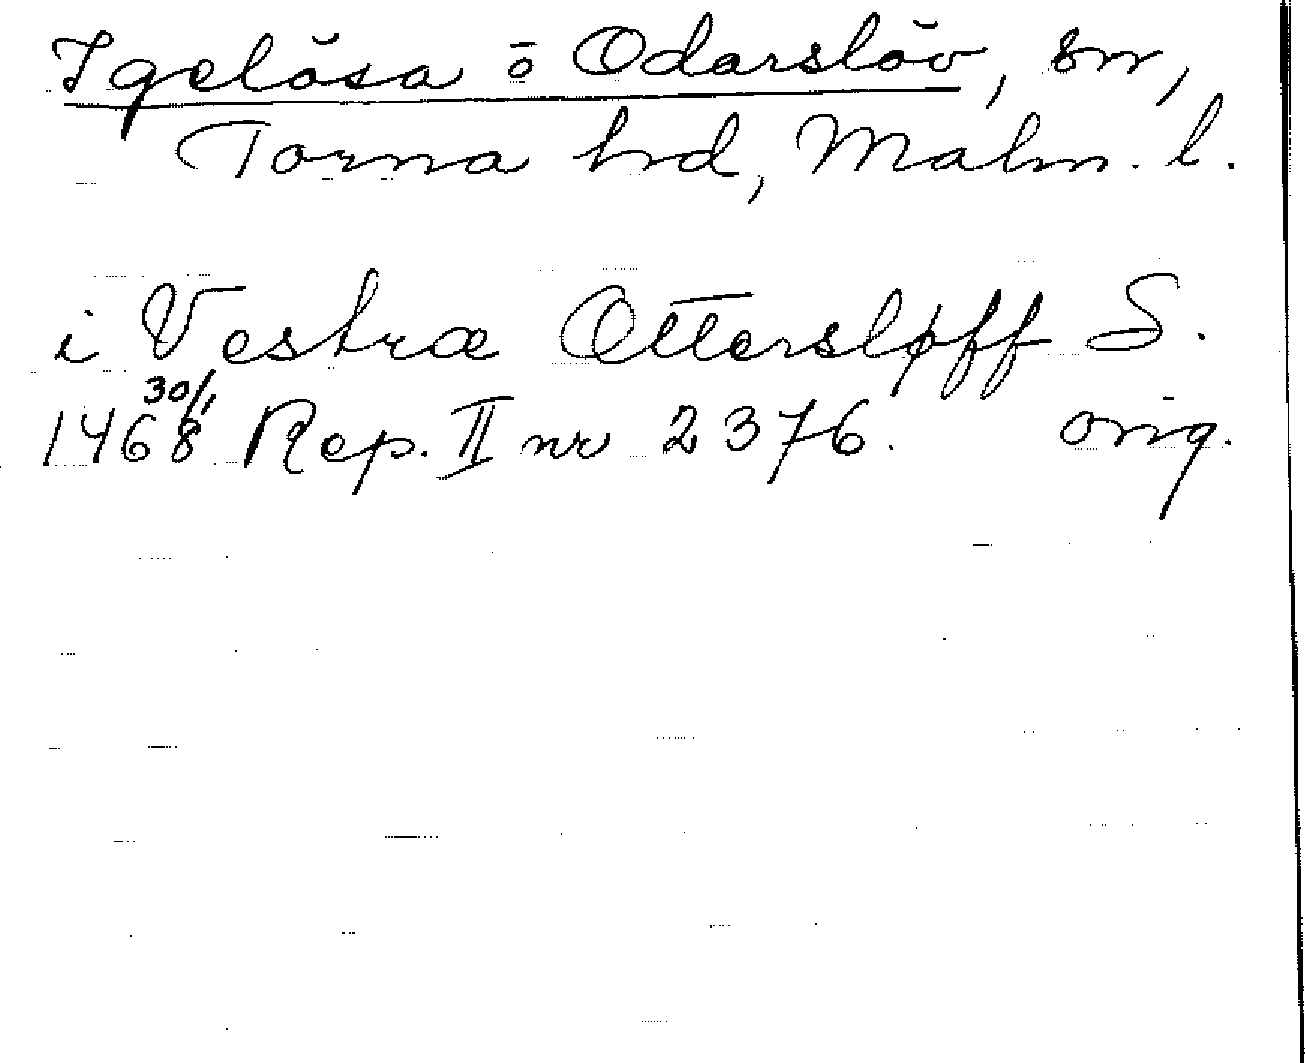 Igelösa o Odarslöv, sn,
Torna hd, Malm. l.
i Vestræ Ottersløff S.
1468 30/1 Rep. II nr 2376. orig.